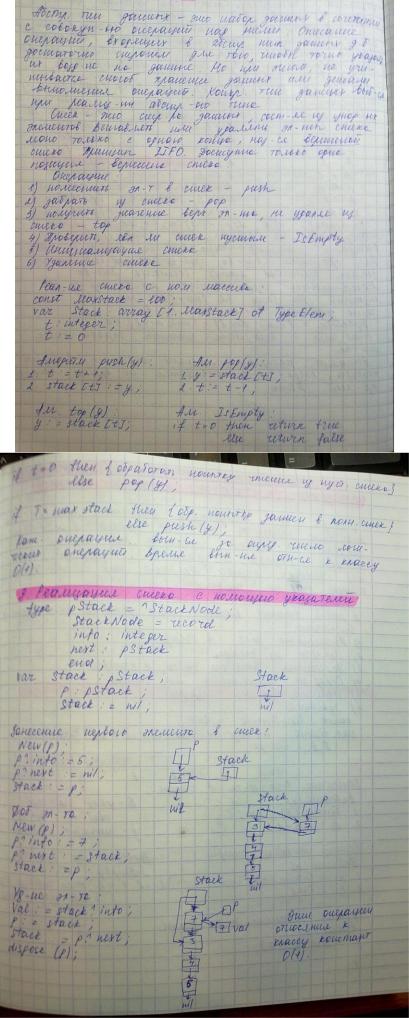 Абстр. тип данных - это набор данных в сочетании
с совокуп-ю операций над ними. Описание
операций, входящих в абстр. тип данных д.б.
достаточно строгим для того, чтобы точно указать
их
Но при этом, не учи-
тывается способ хранения данных или детали
выполнения операций. Конкр. тип данных
при реализ-ии абстр-го типа.
Стек - это структура данных, сост-ая из
элементов. Вставлять или удалять эл-нты стека
можно только с одного конца, наз-ся вершиной
стека. Принцип LIFO. Доступна только одна
позиция - вершина стека
Операции
1) поместить эл-т в стек - push
2) забрать из стека - pop
3) получить значение верх. эл-та, не удаляя из
стека - top
4) Проверить, явл. ли стек пустым - IsEmpty
5) Инициализация стека
6) Удаление стека
Реал-ия стека с пом. массива:
const MaxStack = 100;
var Stack array [1..MaxStack] of TypeElem;
t: integer;
t := 0
Алгоритм push(y):
1. t := t+1;
2. stack[t] := y;
Ал. pop(y):
1. y := stack[t];
2. t := t-1;
Ал. top(y)
y := stack[t];
Ал. IsEmpty:
if t=0 then return true
else return false
if t=0 then {обработать попытку чтения из пуст. стека}
else pop(y);
if T=maxstack then {обр. попытку записи в полн. стек}
else push(y);
операции вып-ся за одну число
операций. Время вып-ния отн-ся к классу
O(1).
Реализация стека с помощью указателей
type pStack = ^StackNode;
StackNode = record
info: integer
next: pStack
end;
var Stack: pStack;
p: pStack;
Stack := nil;
Stack
nil
Занесение первого элемента в стек:
New(p);
p^.info := 5;
p^.next := nil;
Stack := p;
p
Stack
5
nil
Доб. эл-та:
New(p);
p^.info := 7;
p^.next := stack;
Stack := p;
Stack
p
7
nil
Уд-ие эл-та:
Val := stack^.info;
p := stack;
stack := p^.next;
dispose(p);
Stack
p
7 val
nil
операции
относятся к
классу констант
O(1).